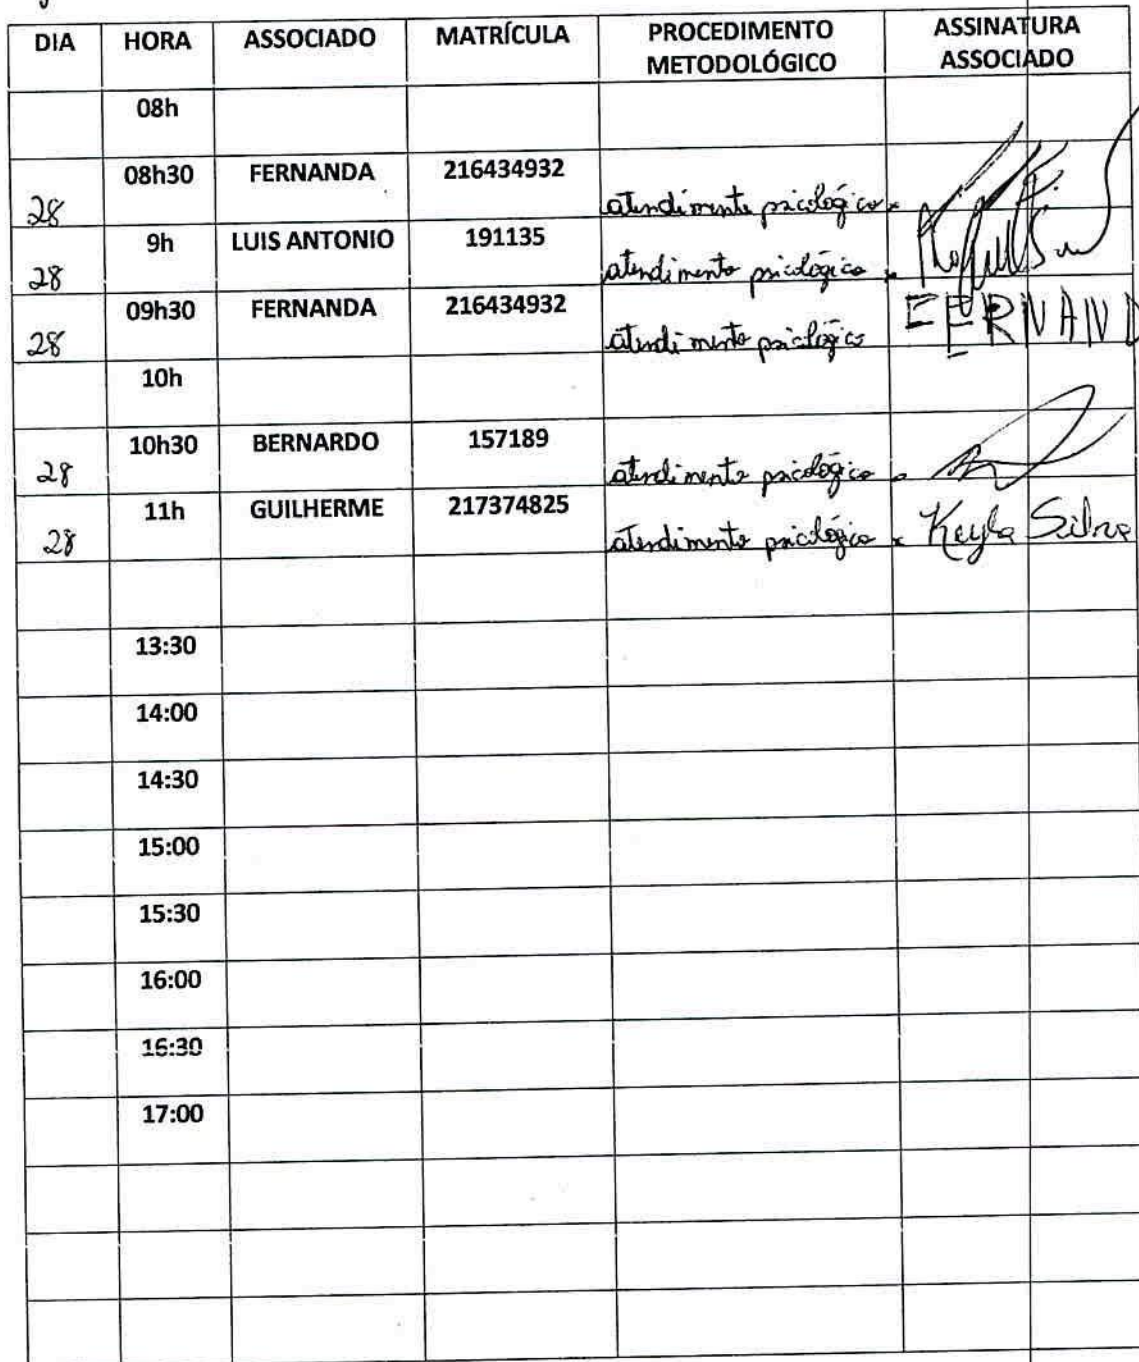 DIA HORA ASSOCIADO MATRÍCULA PROCEDIMENTO METODOLÓGICO ASSINATURA ASSOCIADO
08h
28 08h30 FERNANDA 216434932 atendimento psicológico x
28 9h LUIS ANTONIO 191135 atendimento psicológico x
28 09h30 FERNANDA 216434932 atendimento psicológico FERNAND
10h
28 10h30 BERNARDO 157189 atendimento psicológico
28 11h GUILHERME 217374825 atendimento psicológico x Keyla Silva
13:30
14:00
14:30
15:00
15:30
16:00
16:30
17:00